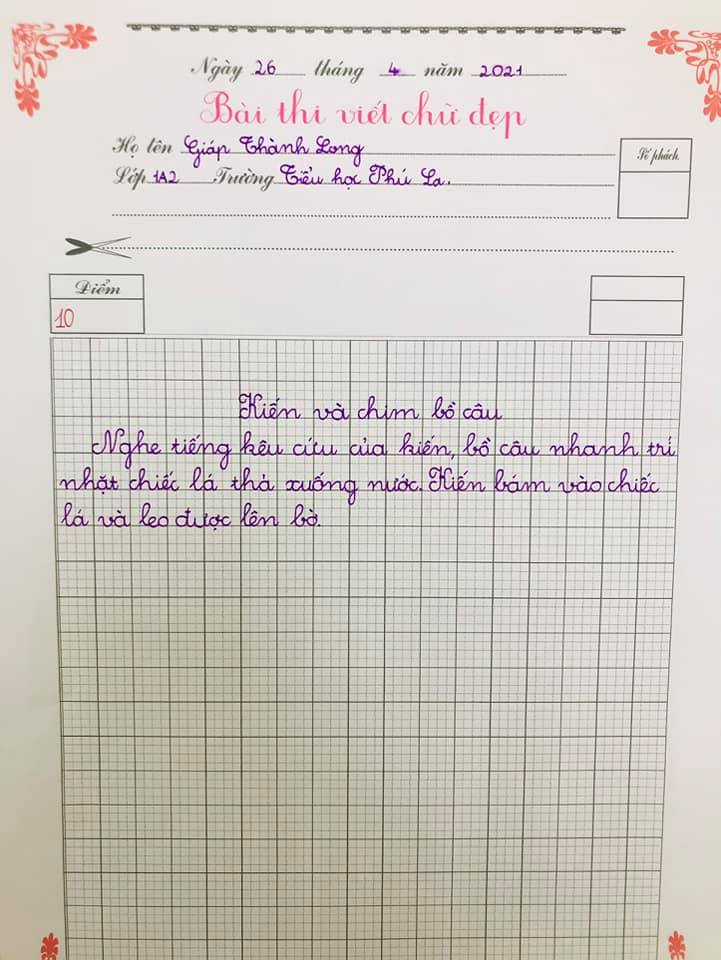 Ngày 26 tháng 4 năm 2021
Bài thi viết chữ đẹp
Họ tên Giáp Thành Long
Số phách
Lớp 1A2 Trường Tiểu học Phú La.
Điểm
10
Kiến và chim bồ câu
Nghe tiếng kêu cứu của kiến, bồ câu nhanh trí
nhặt chiếc lá thả xuống nước. Kiến bám vào chiếc
lá và leo được lên bờ.